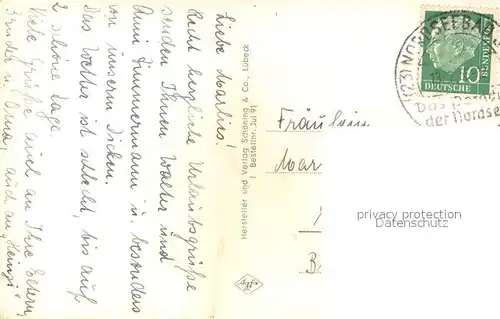 Liebe Marlies!
Recht herzliche Urlaubsgrüße
senden Ihnen Walter und
Anni Zimmermann u. besonders
von unserem Dicken.
Das Wetter ist schlecht, bis auf
2 schöne Tage.
Viele Grüße auch an Ihre Eltern,
Bruder u. Oma, auch an Heinzi.
Hersteller und Verlag Schöning & Co., Lübeck
Bestellnr. Jui 91
Fräulein
Mar
B
(23) NORDSEEBAD
DEUTSCHE
BUNDESPOST
10
Das
der Nordsee
privacy protection
Datenschutz